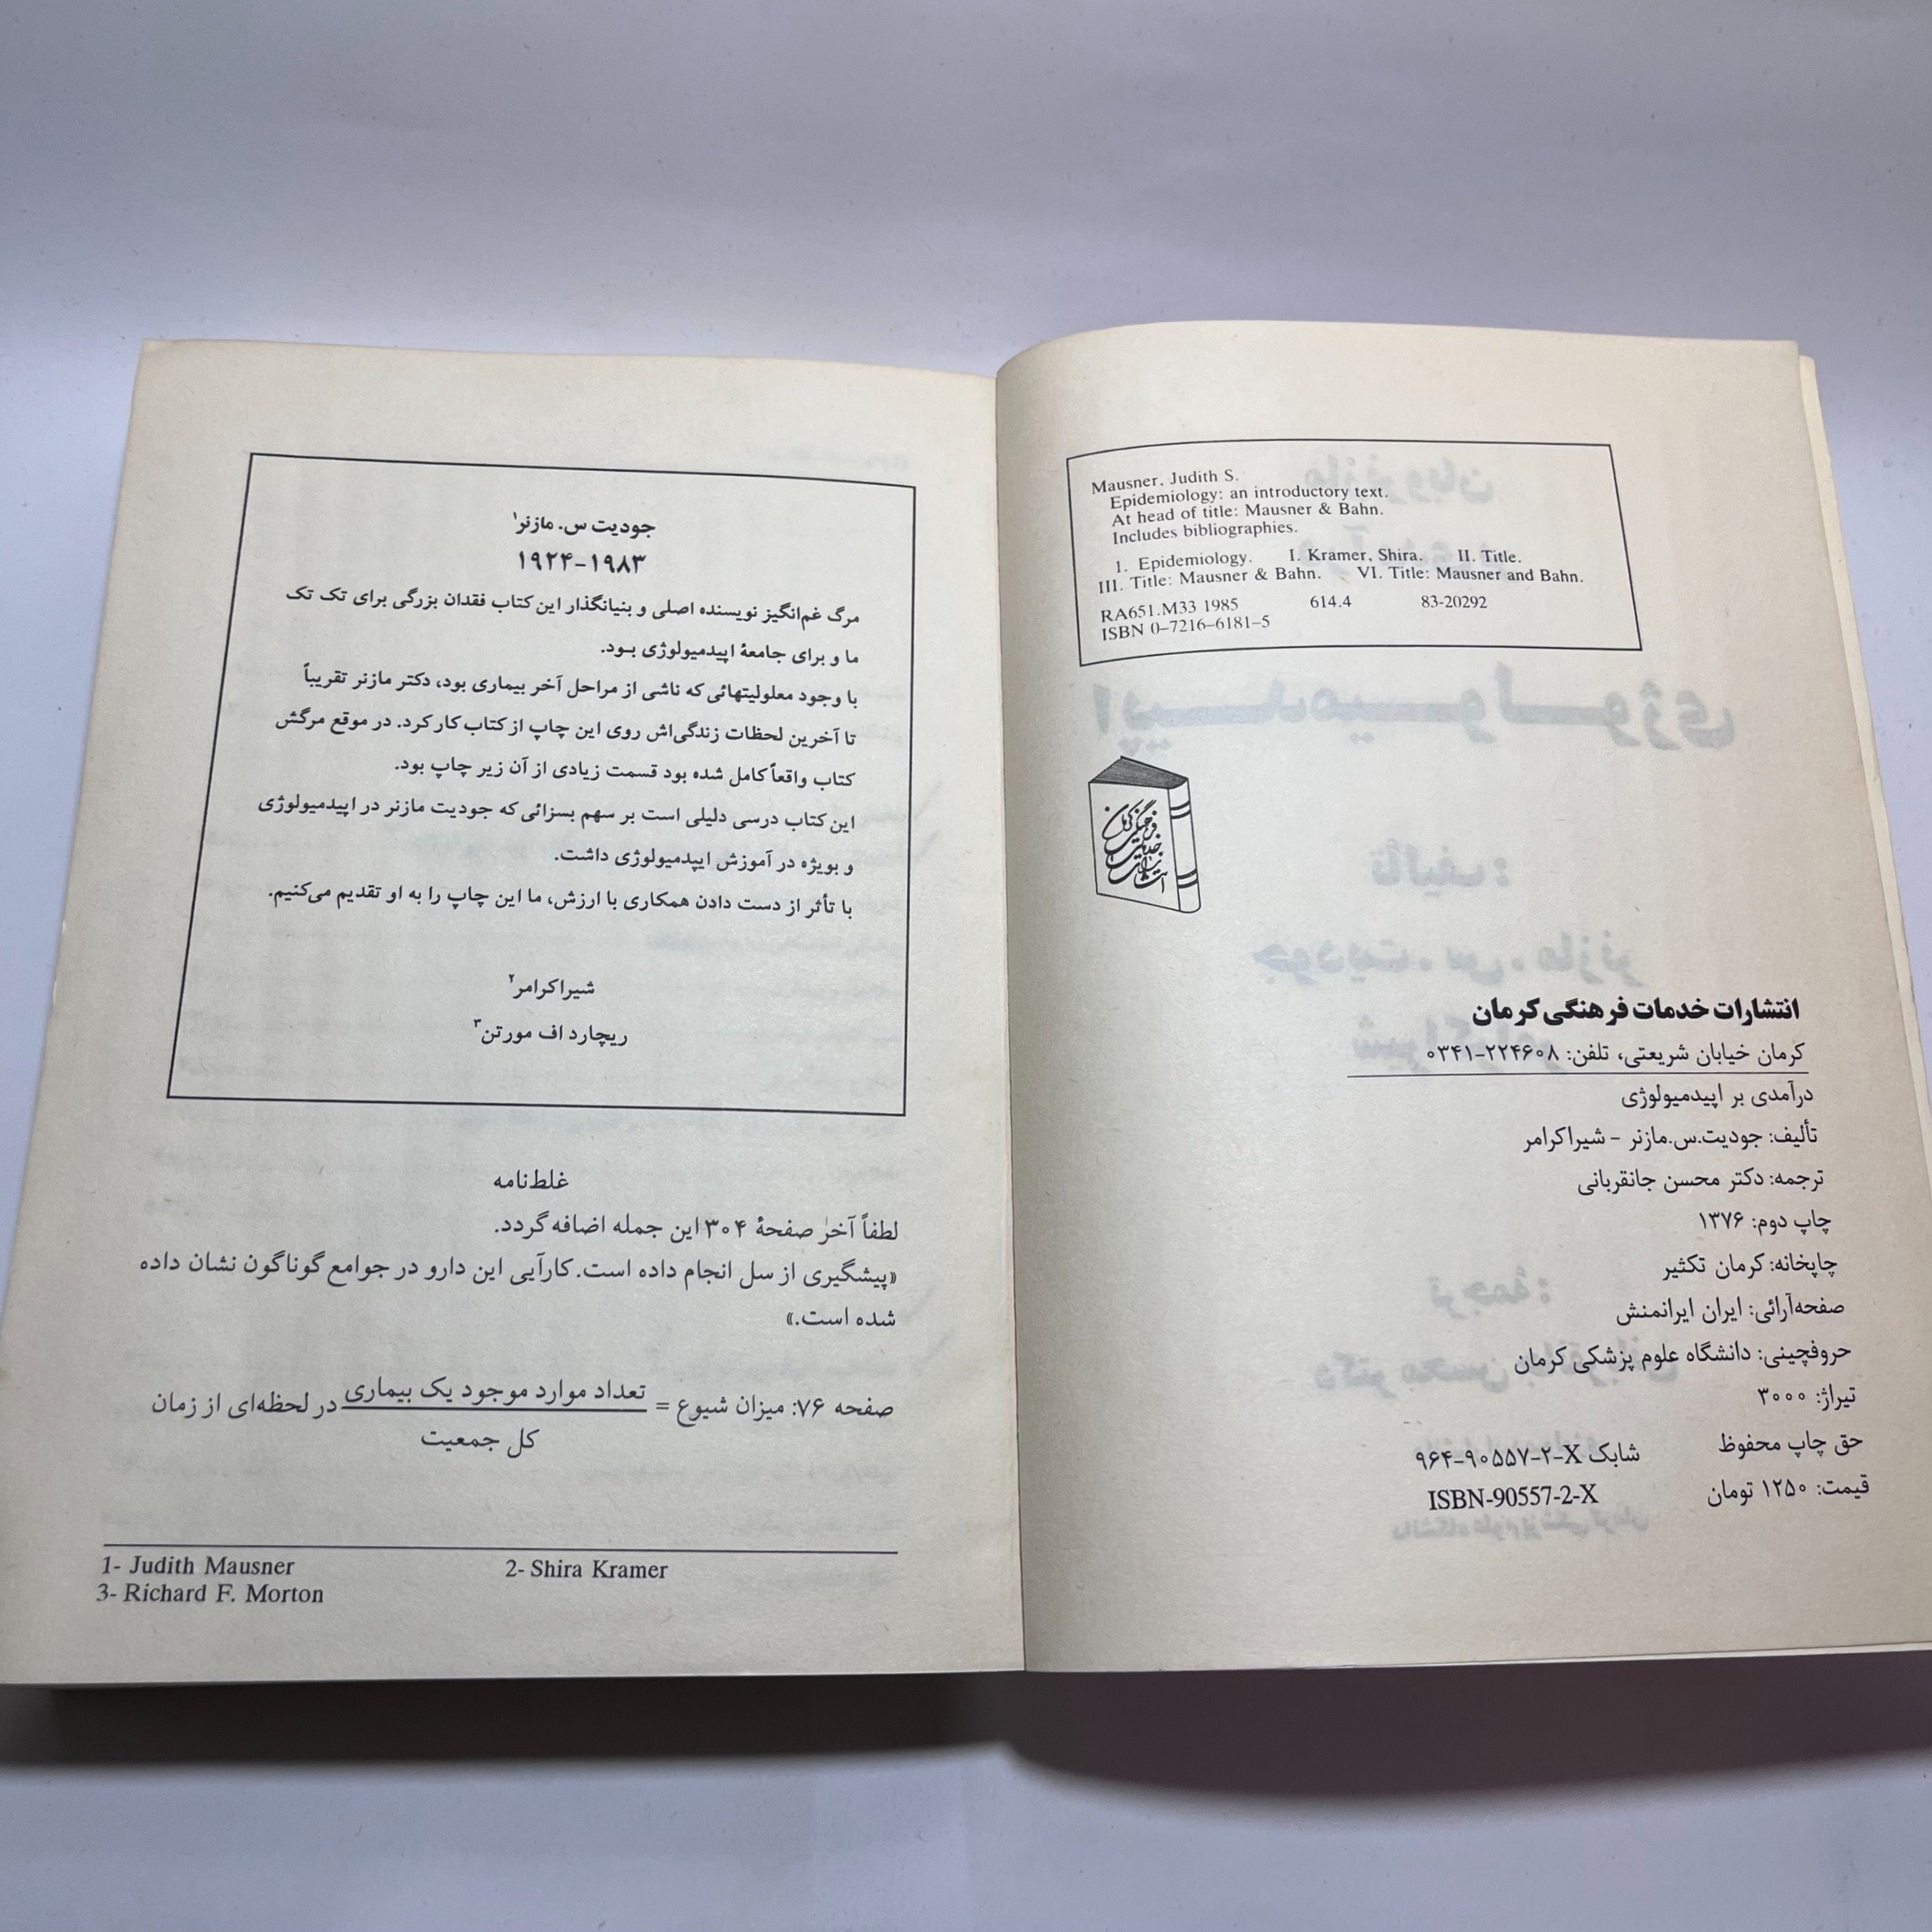 Mausner, Judith S.
Epidemiology: an introductory text.
At head of title: Mausner & Bahn.
Includes bibliographies.
1. Epidemiology. I. Kramer, Shira. II. Title.
III. Title: Mausner & Bahn. VI. Title: Mausner and Bahn.
RA651.M33 1985 614.4 83-20292
ISBN 0-7216-6181-5
انتشارات خدمات فرهنگی کرمان
انتشارات خدمات فرهنگی کرمان
کرمان خیابان شریعتی، تلفن: ۲۲۴۶۰۸-۰۳۴۱
درآمدی بر اپیدمیولوژی
تألیف: جودیت.س.مازنر - شیراکرامر
ترجمه: دکتر محسن جانقربانی
چاپ دوم: ۱۳۷۶
چاپخانه: کرمان تکثیر
صفحه‌آرائی: ایران ایرانمنش
حروفچینی: دانشگاه علوم پزشکی کرمان
تیراژ: ۳۰۰۰
حق چاپ محفوظ شابک X-۲-۹۰۵۵۷-۹۶۴
قیمت: ۱۲۵۰ تومان ISBN-90557-2-X
جودیت س. مازنر۱
۱۹۸۳-۱۹۲۴
مرگ غم‌انگیز نویسنده اصلی و بنیانگذار این کتاب فقدان بزرگی برای تک تک
ما و برای جامعهٔ اپیدمیولوژی بود.
با وجود معلولیتهائی که ناشی از مراحل آخر بیماری بود، دکتر مازنر تقریباً
تا آخرین لحظات زندگی‌اش روی این چاپ از کتاب کار کرد. در موقع مرگش
کتاب واقعاً کامل شده بود قسمت زیادی از آن زیر چاپ بود.
این کتاب درسی دلیلی است بر سهم بسزائی که جودیت مازنر در اپیدمیولوژی
و بویژه در آموزش اپیدمیولوژی داشت.
با تأثر از دست دادن همکاری با ارزش، ما این چاپ را به او تقدیم می‌کنیم.
شیراکرامر۲
ریچارد اف مورتن۳
غلط‌نامه
لطفاً آخر صفحهٔ ۳۰۴ این جمله اضافه گردد.
«پیشگیری از سل انجام داده است. کارآیی این دارو در جوامع گوناگون نشان داده
شده است.»
صفحه ۷۶: میزان شیوع = تعداد موارد موجود یک بیماری در لحظه‌ای از زمان
کل جمعیت
1- Judith Mausner 2- Shira Kramer
3- Richard F. Morton